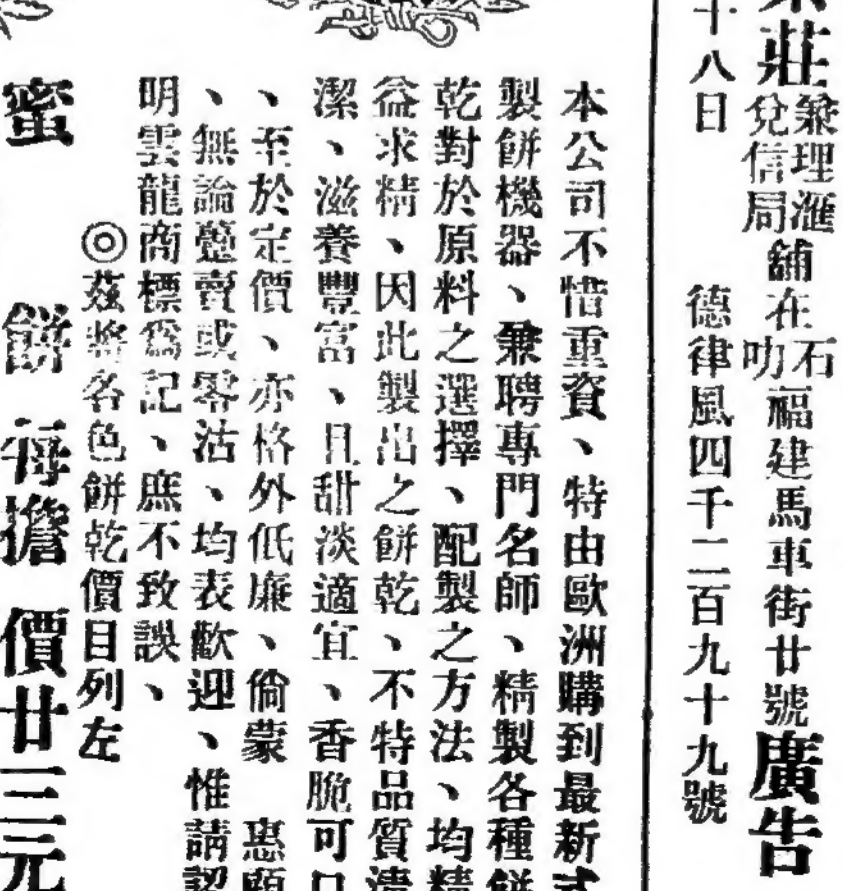 莊
兼理滙
兌信局
舖在
石
叻
福建馬車街廿號
廣告
十八日
德律風四千二百九十九號
本公司不惜重資、特由歐洲購到最新式
製餅機器、兼聘專門名師、精製各種餅
乾對於原料之選擇、配製之方法、均精
益求精、因此製出之餅乾、不特品質清
潔、滋養豐富、且甜淡適宜、香脆可口
、至於定價、亦格外低廉、倘蒙 惠顧
、無論躉賣或零沽、均表歡迎、惟請認
明雲龍商標爲記、庶不致誤、
◎茲將各色餅乾價目列左
蜜 餅 每擔 價廿三元